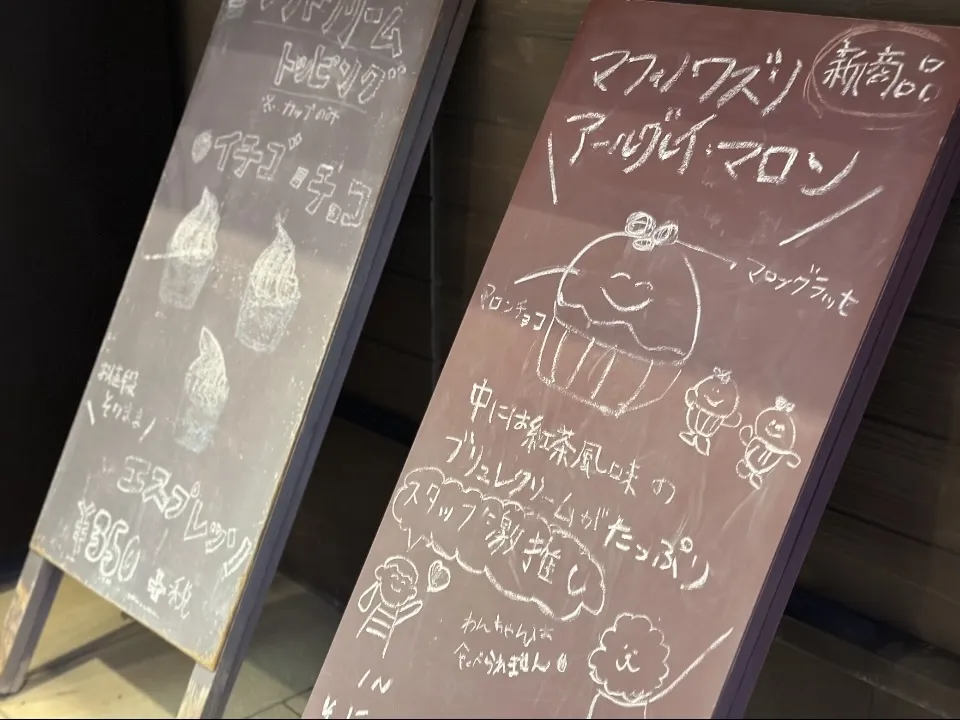 ソフトクリーム
トッピング
※カップのみ
イチゴ・チョコ
お値段
そのまま
エスプレッソ
¥350+税
新商品
マフィノワズリ
アールグレイ・マロン
マロングラッセ
マロンチョコ
中には紅茶風味の
ブリュレクリームが
たっぷり
スタッフ激推し
わんちゃんは
食べられません
IN